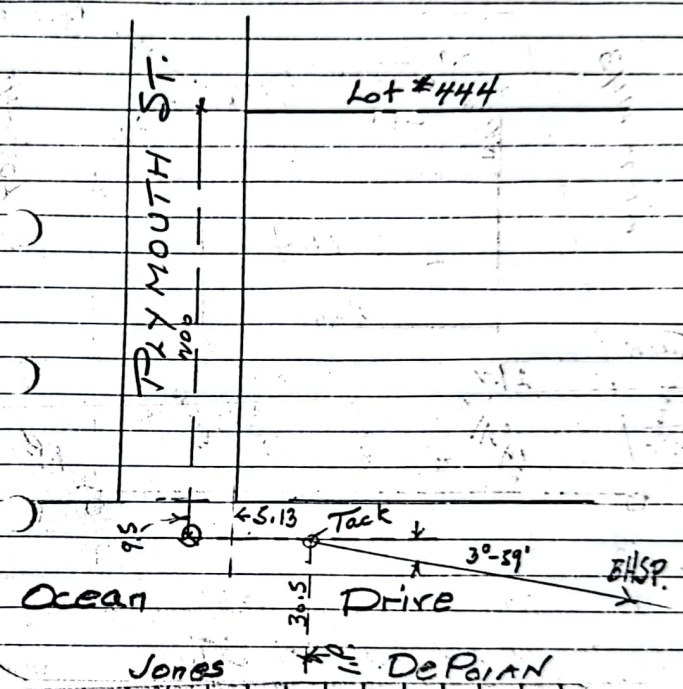 Lot #444
PLYMOUTH ST.
9.5
5.13
Tack
3°-39'
EHSP.
Ocean Drive
30.5
I.P.
Jones
DePoIAN